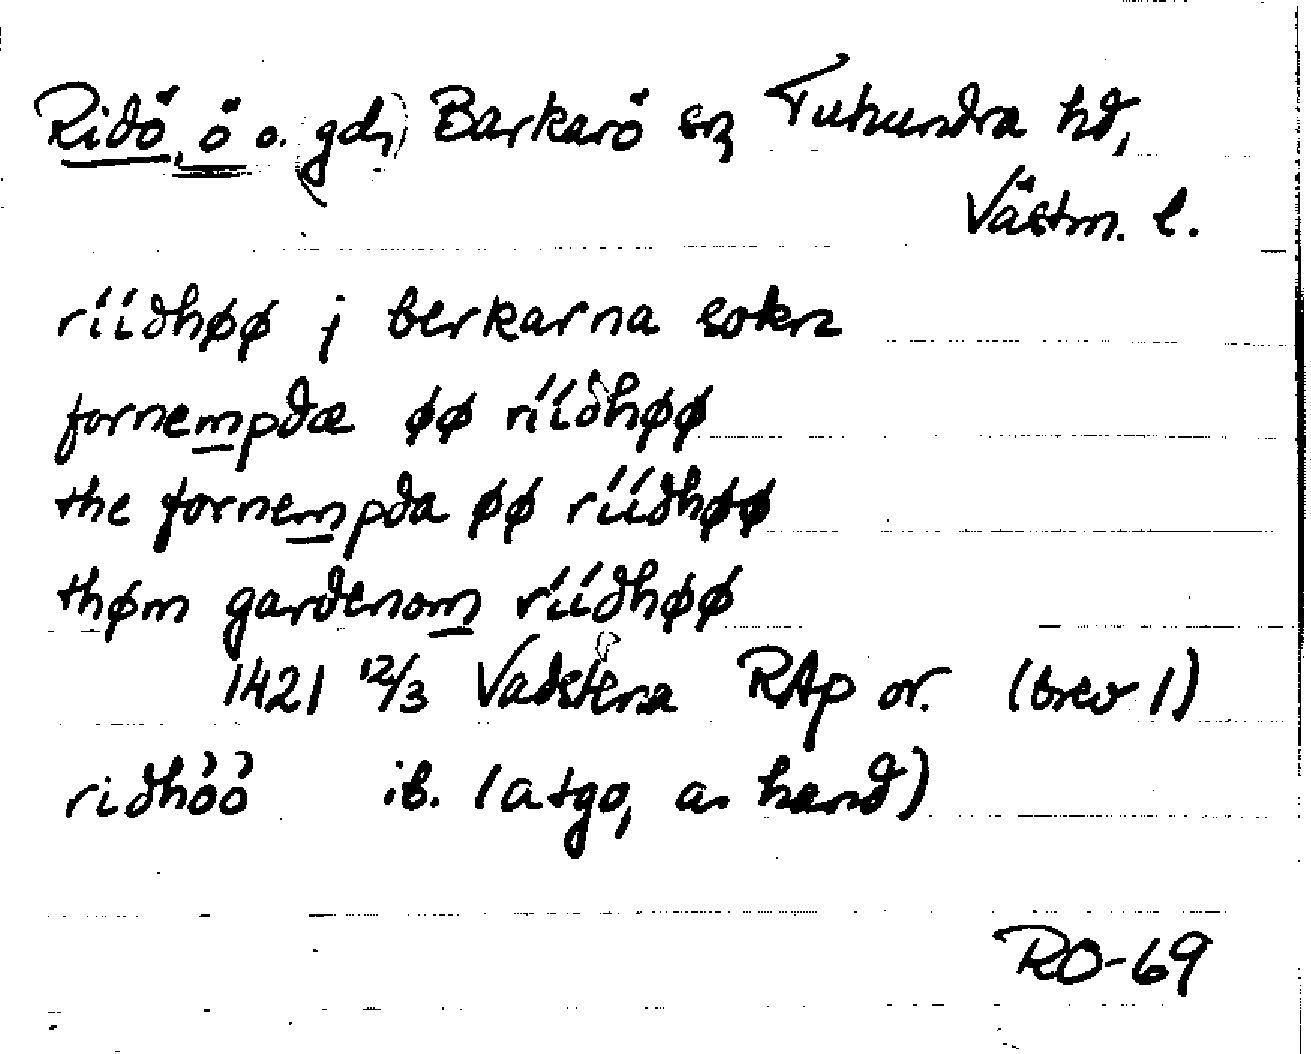 Ridö, ö o. gd, Barkarö sn, Tuhundra hd,
Västm. l.
ríídhøø j berkarna sokn
fornempdæ øø ríídhøø
the fornempda øø ríídhøø
thøm gardenom ríídhøø
1421 12/3 Vadstena RAp or. (brev 1)
ridhöö ib. (atgo, a. hand)
RO-69